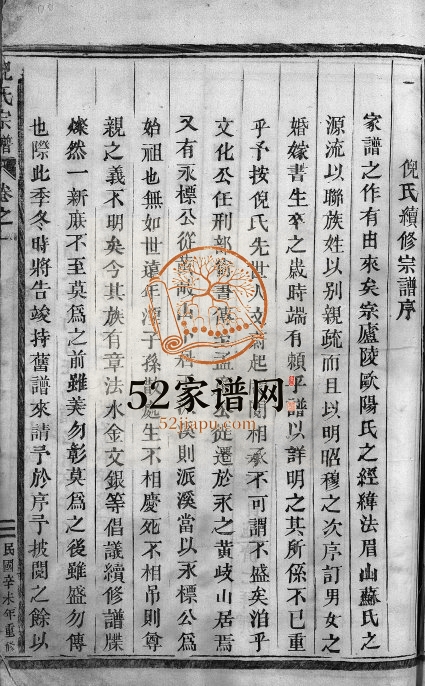 倪氏續修宗譜序
家譜之作有由來矣宗廬陵歐陽氏之經緯法眉山蘇氏之
源流以聯族姓以別親疏而且以明昭穆之次序訂男女之
婚嫁書生卒之歲時端有賴乎譜以詳明之其所係不已重
乎予按倪氏先世人文蔚起相承不可謂不盛矣洎乎
文化公任刑部尚書從遷於永之黄歧山居焉
又有永標公從黄歧山溪則派溪當以永標公爲
始祖也無如世遠年子孫處生不相慶死不相吊則尊
親之義不明矣今其族有章法水金文銀等倡議續修譜牒
燦然一新庶不至莫爲之前雖美勿彰莫爲之後雖盛勿傳
也際此季冬時將告竣持舊譜來請予於序予披閱之餘以
倪氏宗譜 卷之一
民國辛未年重修
52家谱网
52jiapu.com